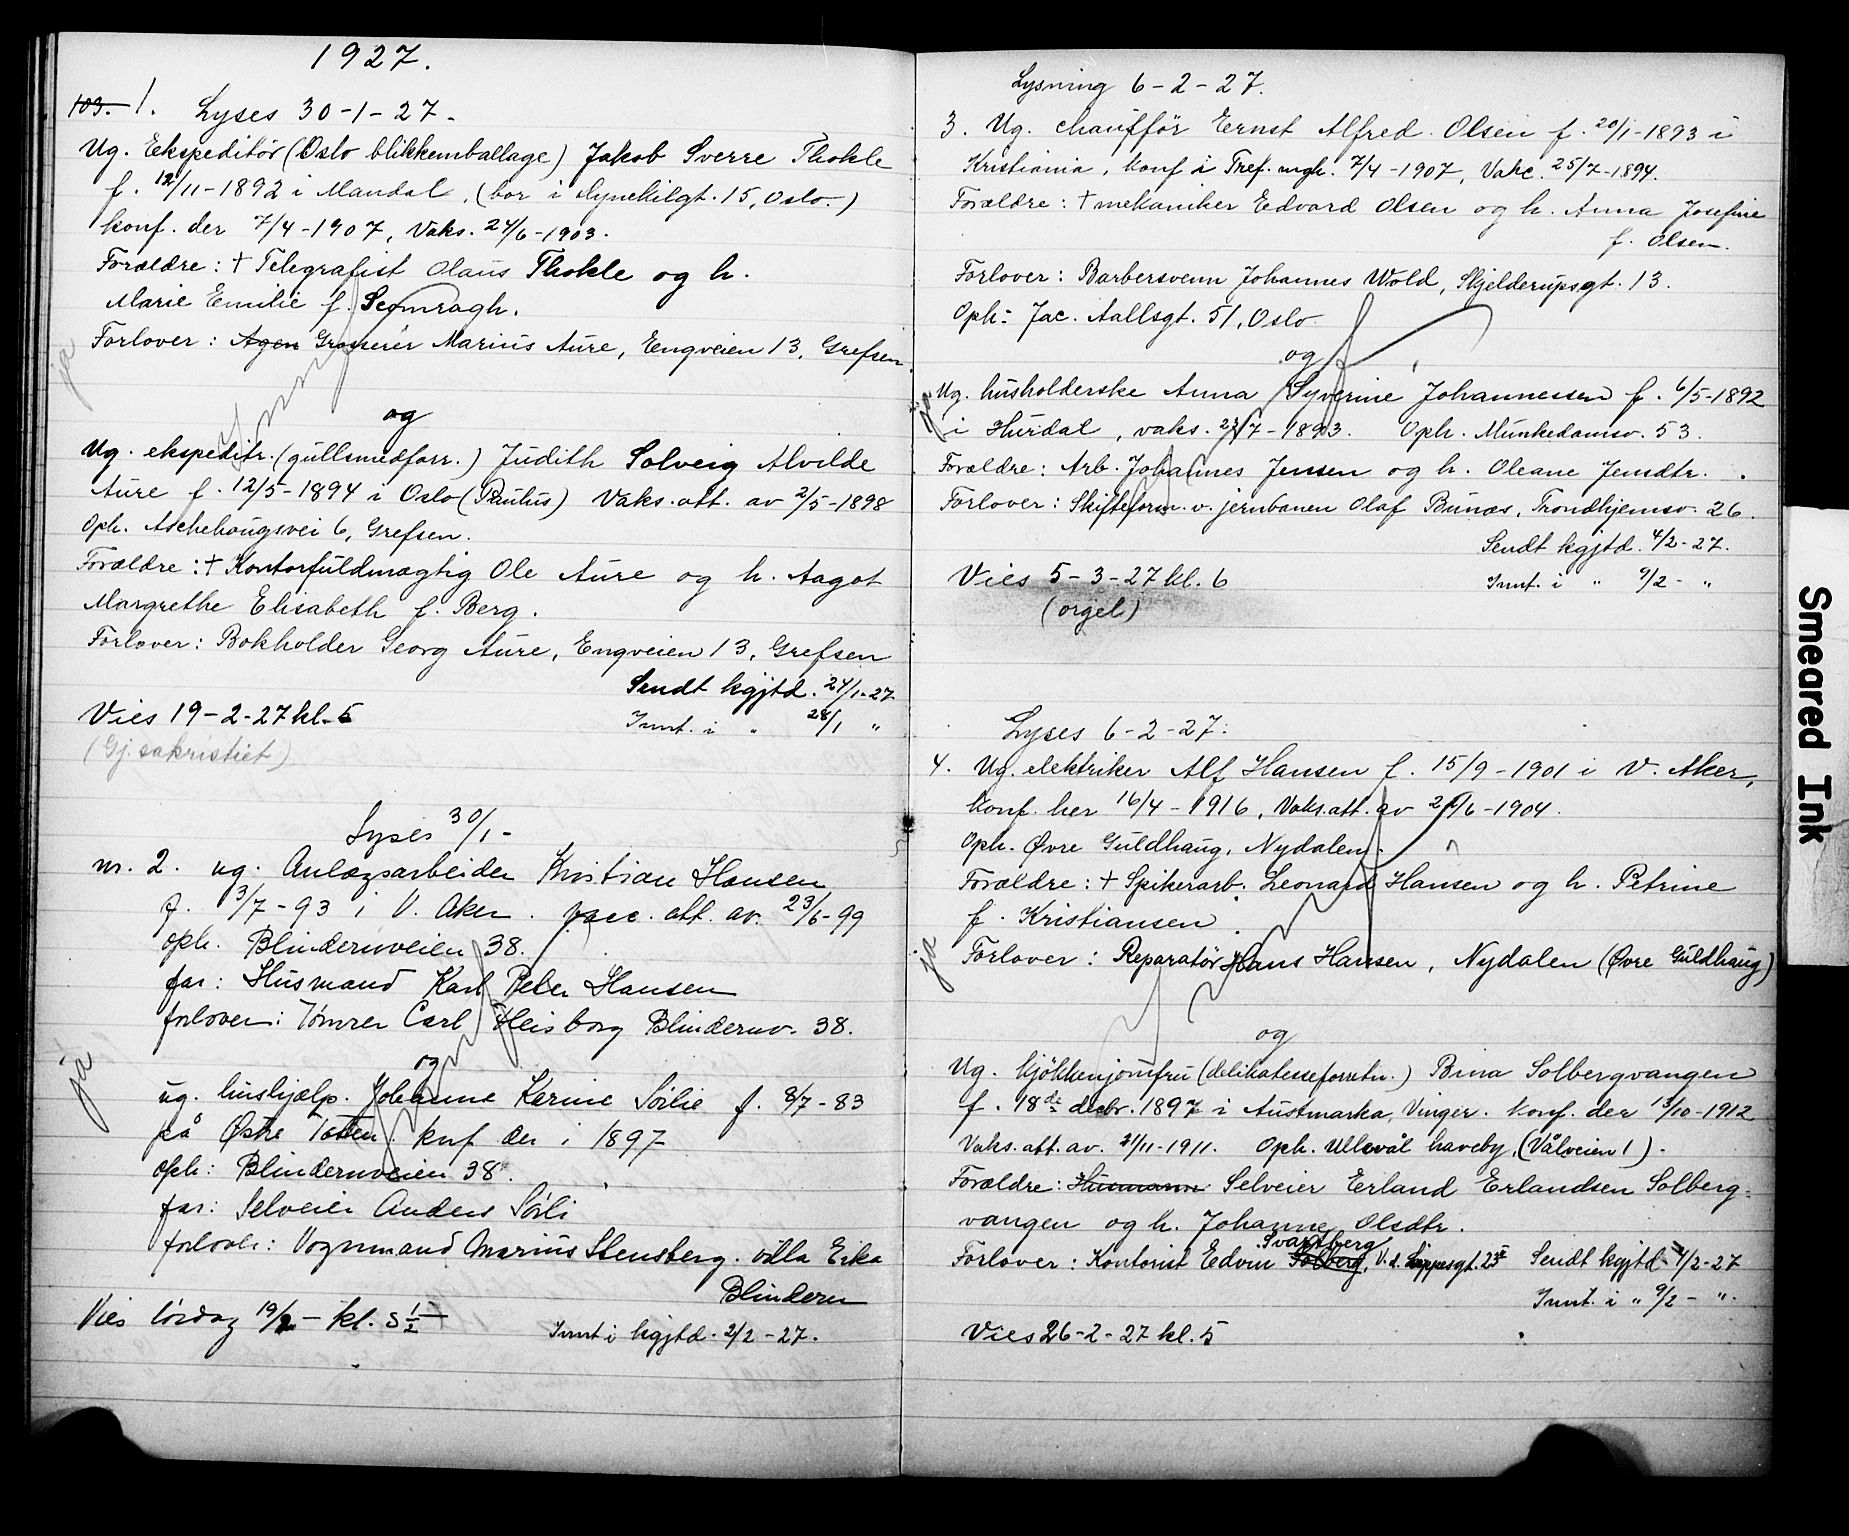 1927.
103. 1. Lyses 30-1-27.
Ug. Ekspeditør (Oslo blikkemballage) Jakob Sverre Thokle
f. 12/11-1892 i Mandal, (bor i 15, Oslo.)
konf. der 7/4-1907, Vaks. 24/6-1903.
Forældre: † Telegrafist Olaus Thokle og h.
Marie Emilie f.
Forlover: Agen Grosserer Marius Aure, Engveien 13, Grefsen.
ja
og
Ug. ekspeditr. (gullsmedforr.) Judith Solveig Alvilde
Aure f. 12/5-1894 i Oslo (Paulus) Vaks. att. av 2/5-1898
Oph. Aschehougsvei 6, Grefsen.
Forældre: † Kontorfuldmægtig Ole Aure og h. Aagot
Margrethe Elisabeth f. Berg.
Forlover: Bokholder Georg Aure, Engveien 13, Grefsen
Sendt kgjtd. 24/1-27
Vies 19-2-27 kl. 5
Innt. i " 28/1 "
(Gj. sakristiet)
Lyses 30/1-
nr. 2. ug. Anlægsarbeider Kristian Hansen
f. 3/7-93 i V. Aker. vacc. att. av. 23/6-99
oph. Blindernveien 38.
far: Husmand Karl Peter Hansen
forlover: Tømrer Carl Heisborg Blindernv. 38.
og
ja
ug. hushjælp. Johanne Karine Sörlie f. 8/7-83
på Østre Toten. knf der i 1897
oph: Blindernveien 38.
far: Selveier Anders Sörli
forlover: Vognmand Marius Stensberg. villa Eika
Blindern
Vies lördag 19/2 - kl. 5 1/2
Innt i kgjtd. 2/2-27.
Lysning 6-2-27.
3. Ug. chaufför Ernst Alfred Olsen f. 20/1-1893 i
Kristiania, konf i Tref. mgh. 7/4-1907, Vakc. 25/7-1894.
Forældre: † mekaniker Edvard Olsen og h. Anna Josefine
f. Olsen.
Forlover: Barbersvenn Johannes Wold, Skjelderupsgt. 13.
Oph: Jac. Aallsgt. 51, Oslo.
og
ja
Ug. husholderske Anna Syverine Johannessen f. 6/5-1892
i Hurdal, vaks. 23/7-1893. Oph. Munkedamsv. 53.
Forældre: Arb. Johannes Jensen og h. Oleane Jensdtr.
Forlover: Skifteform. v. jernbanen Olaf Bunæs, Trondhjemsv. 26.
Sendt kgjtd. 4/2-27.
Vies 5-3-27 kl. 6
Innt. i " 9/2 - "
(orgel)
Lyses 6-2-27.
4. Ug. elektriker Alf Hansen f. 15/9-1901 i V. Aker,
konf. her 16/4-1916, Vaks. att. av /6-1904.
Oph. Øvre Guldhaug, Nydalen.
Forældre: † Spikerarb. Leonard Hansen og h. Petrine
f. Kristiansen.
ja
Forlover: Reparatør Hans Hansen, Nydalen (Øvre Guldhaug)
og
Ug. kjökkenjomfru (delikatesseforretn.) Bina Solbergvangen
f. 18de decbr. 1897 i Austmarka, Vinger. konf. der 13/10-1912
Vaks. att. av. 21/11-1911. Oph. Ullevål haveby, (Vålveien 1).
Forældre: Husmann Selveier Erland Erlandsen Solberg-
vangen og h. Johanne Olsdtr.
Svartberg
Forlover: Kontorist Edvin Solberg, V.d. Lippesgt. 23 Sendt kgjtd. 4/2-27
Innt. i " 9/2 - ".
Vies 26-2-27 kl. 5
Smeared Ink